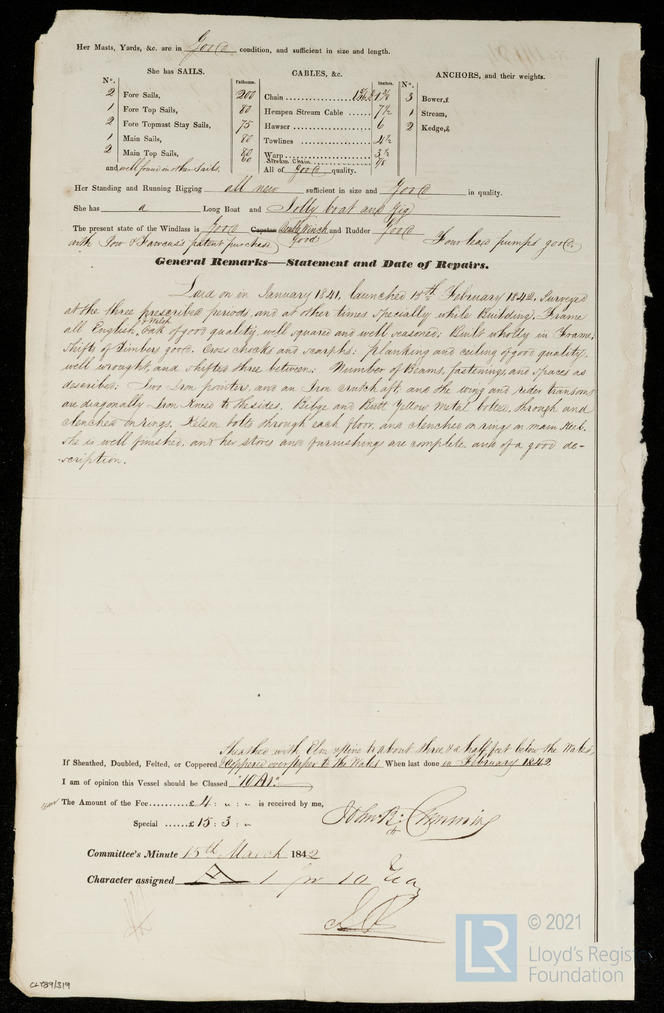 Her Masts, Yards, &c. are in Good condition, and sufficient in size and length.
She has SAILS. CABLES, &c. ANCHORS, and their weights.
N°. Fathoms. Inches. N°.
2 Fore Sails, 200 Chain 1 3/8 3 Bowers,
1 Fore Top Sails, 80 Hempen Stream Cable 7 1/2 1 Stream,
2 Fore Topmast Stay Sails, 75 Hawser 6 2 Kedge,
1 Main Sails, 80 Towlines 4 1/2
2 Main Top Sails, 80 Warp 3 1/2
60 Stream Chain 7/8
and well found in other Sails. All of good quality.
Her Standing and Running Rigging all new sufficient in size and Good in quality.
She has a Long Boat and Jolly boat and Gig
The present state of the Windlass is Good Capstan and Winch Good and Rudder Good
with patent purchase Four pumps good
General Remarks—Statement and Date of Repairs.
Laid on in January 1841, launched 15th February 1842, Surveyed
at the three prescribed periods, and at other times specially while Building; Frame
all English & Welsh Oak of good quality, well squared and well seasoned; Built wholly in Frame;
Shifts of Timbers good. Cross chocks and scarphs: planking and ceiling of good quality,
well wrought, and shifted three between: Number of Beams, fastenings and spaces as
described; Two Iron pointers, and an Iron crutch aft, and the wing and rider transoms
are diagonally Iron Kneed to the sides. Bilge and Butt Yellow Metal bolted through and
clenched on rings, Kelson bolts through each floor, and clenched on rings on main Keel.
She is well finished, and her stores and furnishings are complete and of a good de-
-scription.
Sheathed with Elm to about three & a half feet below the Wales,
If Sheathed, Doubled, Felted, or Coppered Coppered over paper to the Wales When last done in February 1842
I am of opinion this Vessel should be Classed "10A1"
The Amount of the Fee £ 4 : " : " is received by me,
Special £ 15 : 3 : " John R: Cumming
Committee's Minute 15th March 1842
Character assigned A 1 for 10 Yea
© 2021
LR Lloyd's Register
Foundation